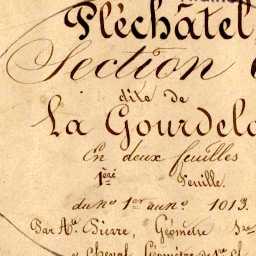 Pléchâtel
Section
dite de
La Gourdel
En deux feuilles
1ère Feuille.
du No 1er au No 1013.
Par Ate Pierre, Géomètre
et Cheval Géomètre de 1re cl